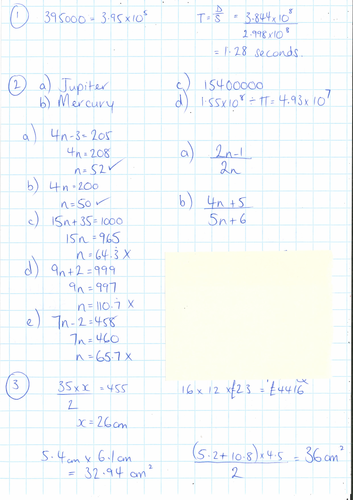 ① 395000 = 3.95 x 10⁵
T = D/S = 3.844x10⁸ / 2.998x10⁸
= 1.28 seconds.
② a) Jupiter
b) Mercury
c) 15400000
d) 1.55x10⁸ ÷ π = 4.93 x 10⁷
a) 4n-3=205
4n=208
n=52 ✓
b) 4n=200
n=50 ✓
c) 15n+35=1000
15n=965
n=64.3̇ x
d) 9n+2=999
9n=997
n=110.7̇ x
e) 7n-2=458
7n=460
n=65.7 x
a) 2n-1 / 2n
b) 4n+5 / 5n+6
③ 35 x x / 2 = 455
x = 26cm
16 x 12 x £23 = £4416
5.4cm x 6.1cm
= 32.94 cm²
(5.2+10.8) x 4.5 / 2 = 36cm²